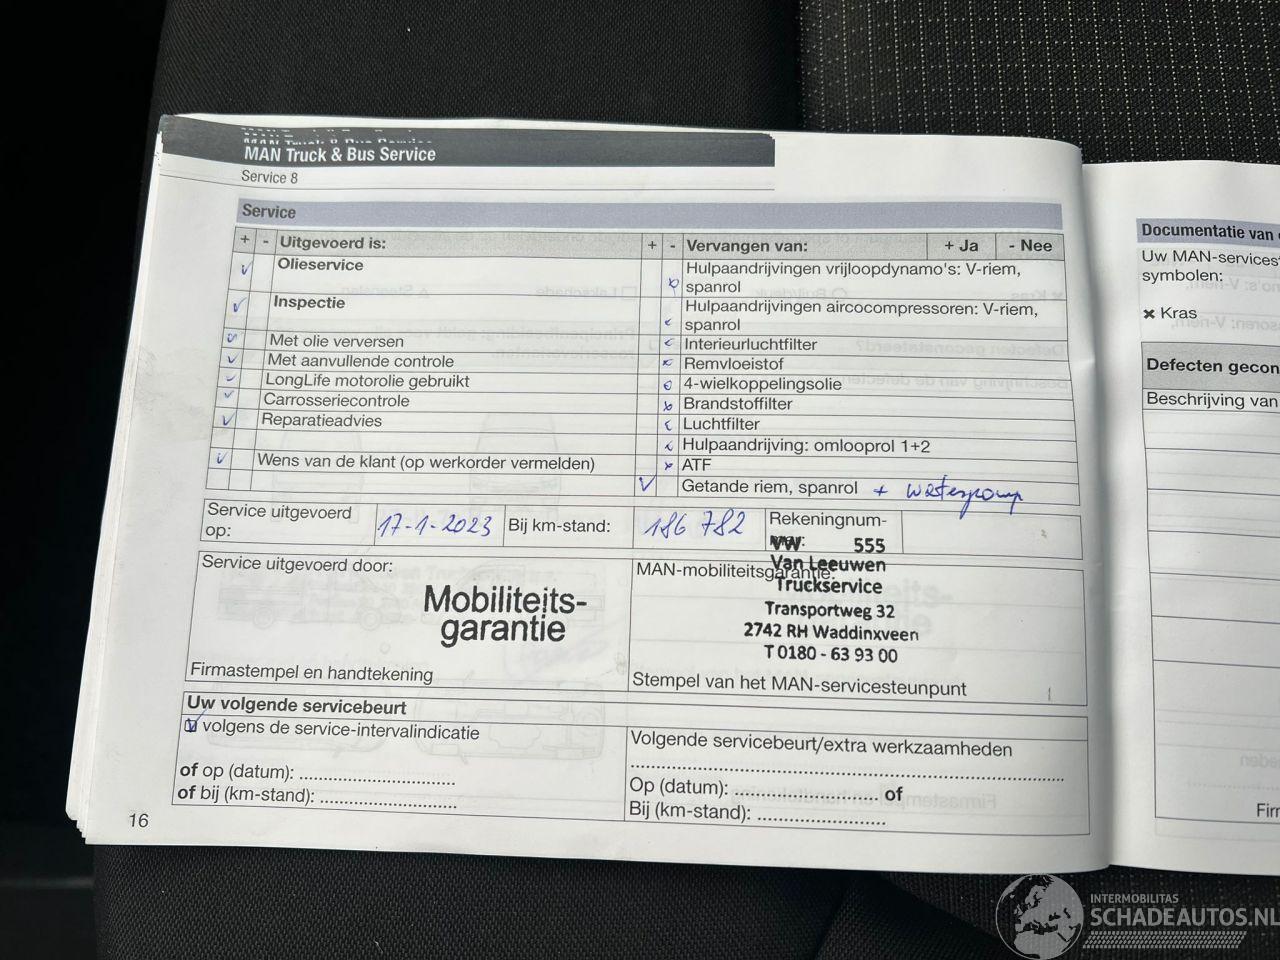 MAN Truck & Bus Service
Service 8
Service
+ - Uitgevoerd is:
Olieservice
Inspectie
Met olie verversen
Met aanvullende controle
LongLife motorolie gebruikt
Carrosseriecontrole
Reparatieadvies
Wens van de klant (op werkorder vermelden)
+ - Vervangen van: + Ja - Nee
Hulpaandrijvingen vrijloopdynamo's: V-riem,
spanrol
Hulpaandrijvingen aircocompressoren: V-riem,
spanrol
Interieurluchtfilter
Remvloeistof
4-wielkoppelingsolie
Brandstoffilter
Luchtfilter
Hulpaandrijving: omlooprol 1+2
ATF
Getande riem, spanrol + waterpomp
Service uitgevoerd
op:
17-1-2023
Bij km-stand:
186 782
Rekeningnum-
VW 555
Van Leeuwen
Truckservice
Transportweg 32
2742 RH Waddinxveen
T 0180 - 63 93 00
Service uitgevoerd door:
Mobiliteits-
garantie
Firmastempel en handtekening
MAN-mobiliteitsgarantie:
Stempel van het MAN-servicesteunpunt
Uw volgende servicebeurt
volgens de service-intervalindicatie
of op (datum): ..............................
of bij (km-stand): ..........................
Volgende servicebeurt/extra werkzaamheden
Op (datum): .......................... of
Bij (km-stand): ........................
16
Documentatie van
Uw MAN-services
symbolen:
× Kras
Defecten gecon
Beschrijving van
Fir
INTERMOBILITAS
SCHADEAUTOS.NL